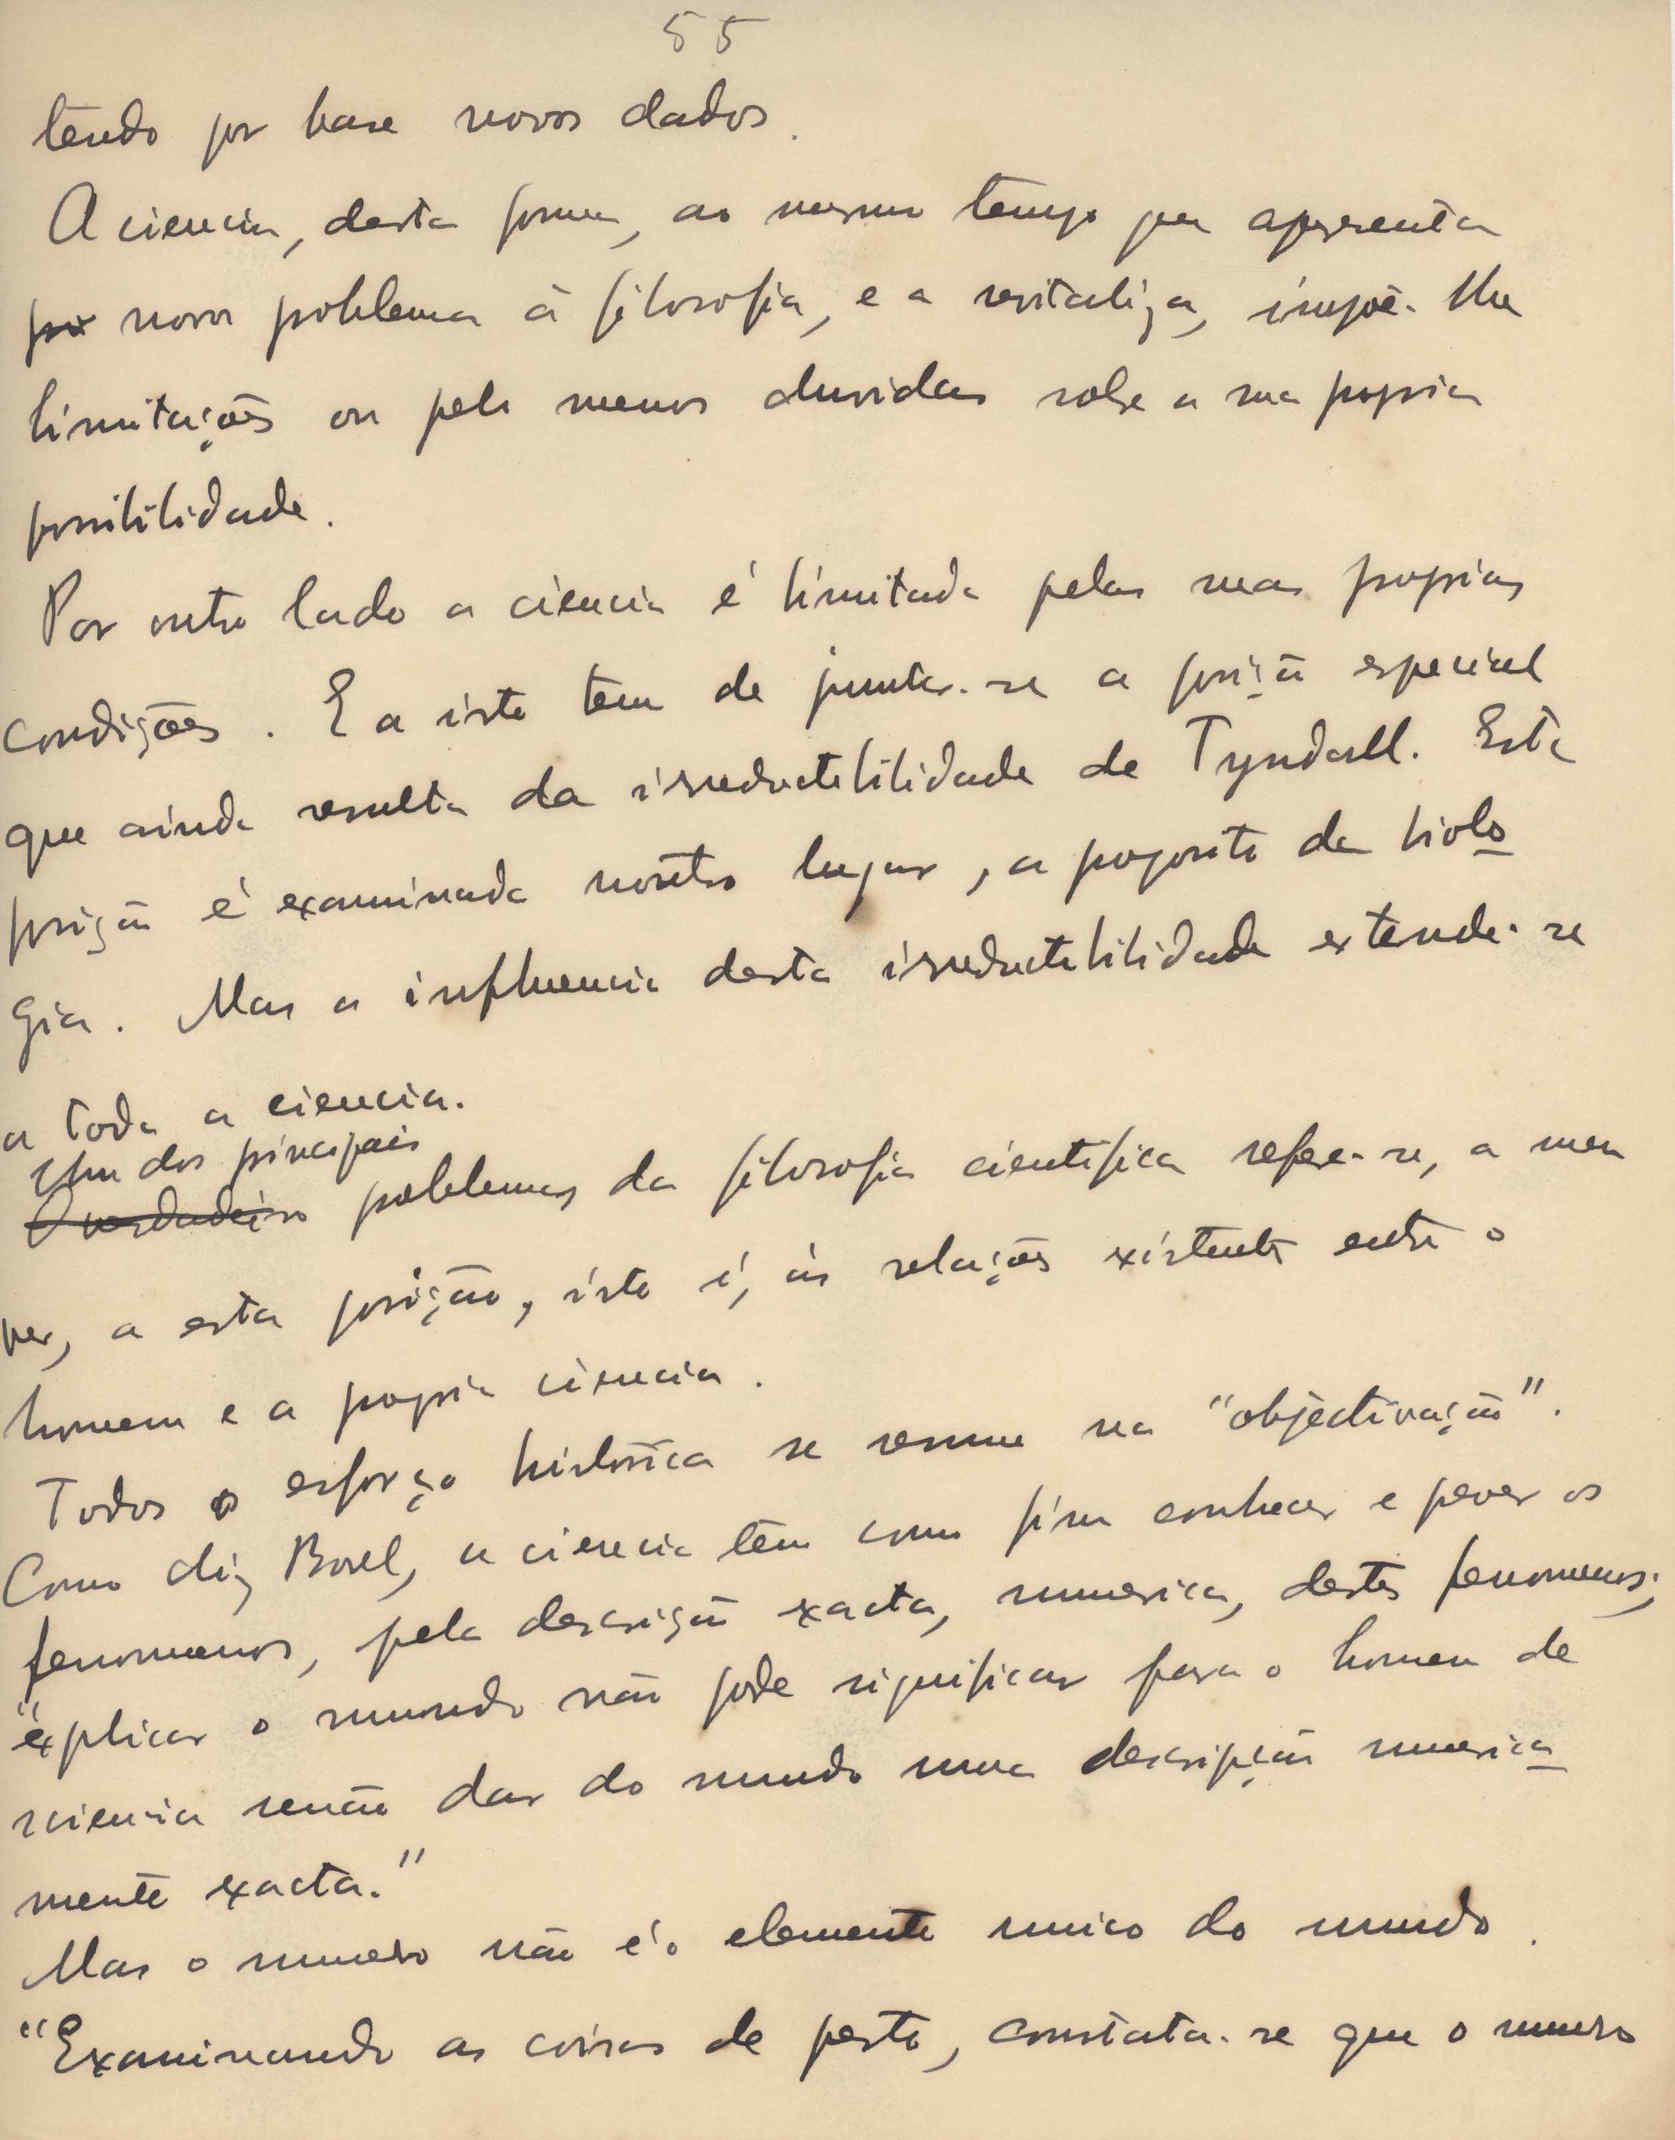 55
tendo por base novos dados.
A ciencia, desta forma, ao mesmo tempo que apresenta
novos problemas á filosofia, e a revitaliza, impõe-lhe
limitações ou pelo menos duvidas sobre a sua propria
possibilidade.
Por outro lado a ciencia é limitada pelas suas proprias
condições. E a isto tem de juntar-se a posição especial
que ainda resulta da irreductibilidade de Tyndall. Esta
posição é examinada noutro lugar, a proposito da biolo
gia. Mas a influencia desta irreductibilidade extende-se
a toda a ciencia.
Um dos principais
O verdadeiro problemas da filosofia cientifica refere-se, a meu
ver, a esta posição, isto é, ás relações existentes entre o
homem e a propria ciencia.
Todos o esforço historico se resume na "objectivação".
Como diz Borel, a ciencia tem como fim conhecer e prever os
fenomenos, pela descrição exacta, numerica, destes fenomenos;
"explicar o mundo não pode significar para o homem de
sciencia senão dar do mundo uma descripção numerica
mente exacta."
Mas o numero não é o elemento unico do mundo.
"Examinando as coisas de perto, constata-se que o numero